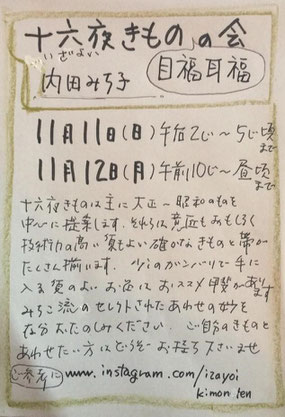 十六夜きもの の会
いざよい
内田みち子 目福耳福
11月11日(日)午后2じ〜5じ頃まで
11月12日(月)午前10じ〜昼頃まで
十六夜きものは主に大正〜昭和のものを
中心に提案します。それらは意匠もおもしろく
技術力の高い質もよい確かなきものと帯が
たくさん揃います。少しのガンバリで手に
入る質のよいお品におススメ甲斐があります
みちこ流のセレクトされたあわせの妙を
存分おたのしみください。ご自分のきものと
あわせたい方はどうぞお持ち下さいませ
ご参考に www.instagram.com/izayoi
kimonoten